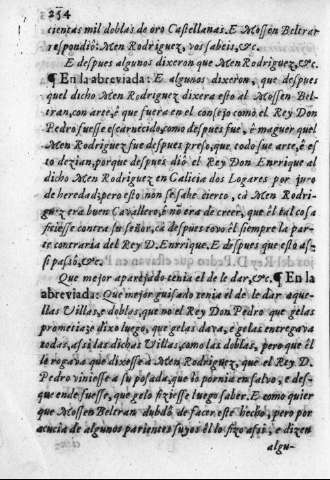 254
cientas mil doblas de oro Castellanas. E Mossen Beltran
respondiò: Men Rodriguez, vos sabeis, &c.
E despues algunos dixeron que Men Rodriguez, &c.
¶ En la abreviada: E algunos dixeron, que despues
quel dicho Men Rodriguez dixera esto al Mossen Bel-
tran, con arte, è que fuera en el consejo como el Rey Don
Pedro fuesse escarnecido, como despues fue, è maguer quel
Men Rodriguez fue despues preso, que todo fue arte, è es-
to dezian, porque despues diò el Rey Don Enrrique al
dicho Men Rodriguez en Galicia dos Logares por juro
de heredad; pero esto non se sabe cierto, cà Men Rodri-
guez era buen Cavallero, è nõ era de creer, que èl tal cosa
ficiesse contra su señor, cà despues tovo èl siempre la par-
te contraria del Rey D. Enrrique. E despues que esto as-
si passò, &c.
Que mejor aparejado tenia èl de le dar, &c. ¶ En la
abreviada: Que mejor guisado tenia èl de le dar aque-
llas Villas, e doblas, que no el Rey Don Pedro que gelas
prometia; e dixo luego, que gelas dava, e gelas entregava
todas, assi las dichas Villas, como las doblas, pero que èl
le rogava que dixesse à Men Rodriguez, que el Rey D.
Pedro viniesse a su posada, que lo pornia en salvo, e des-
que ende fuesse, que gelo fiziesse luego saber. E como quier
que Mossen Beltran dubdò de facer este hecho, pero por
acucia de algunos parientes suyos èl lo fizo assi, e dizen
algu-